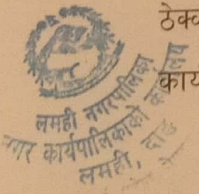 ठेक्
कार्य
लमही नगरपालिका
नगर कार्यपालिकाको कार्यालय
लमही, दाङ